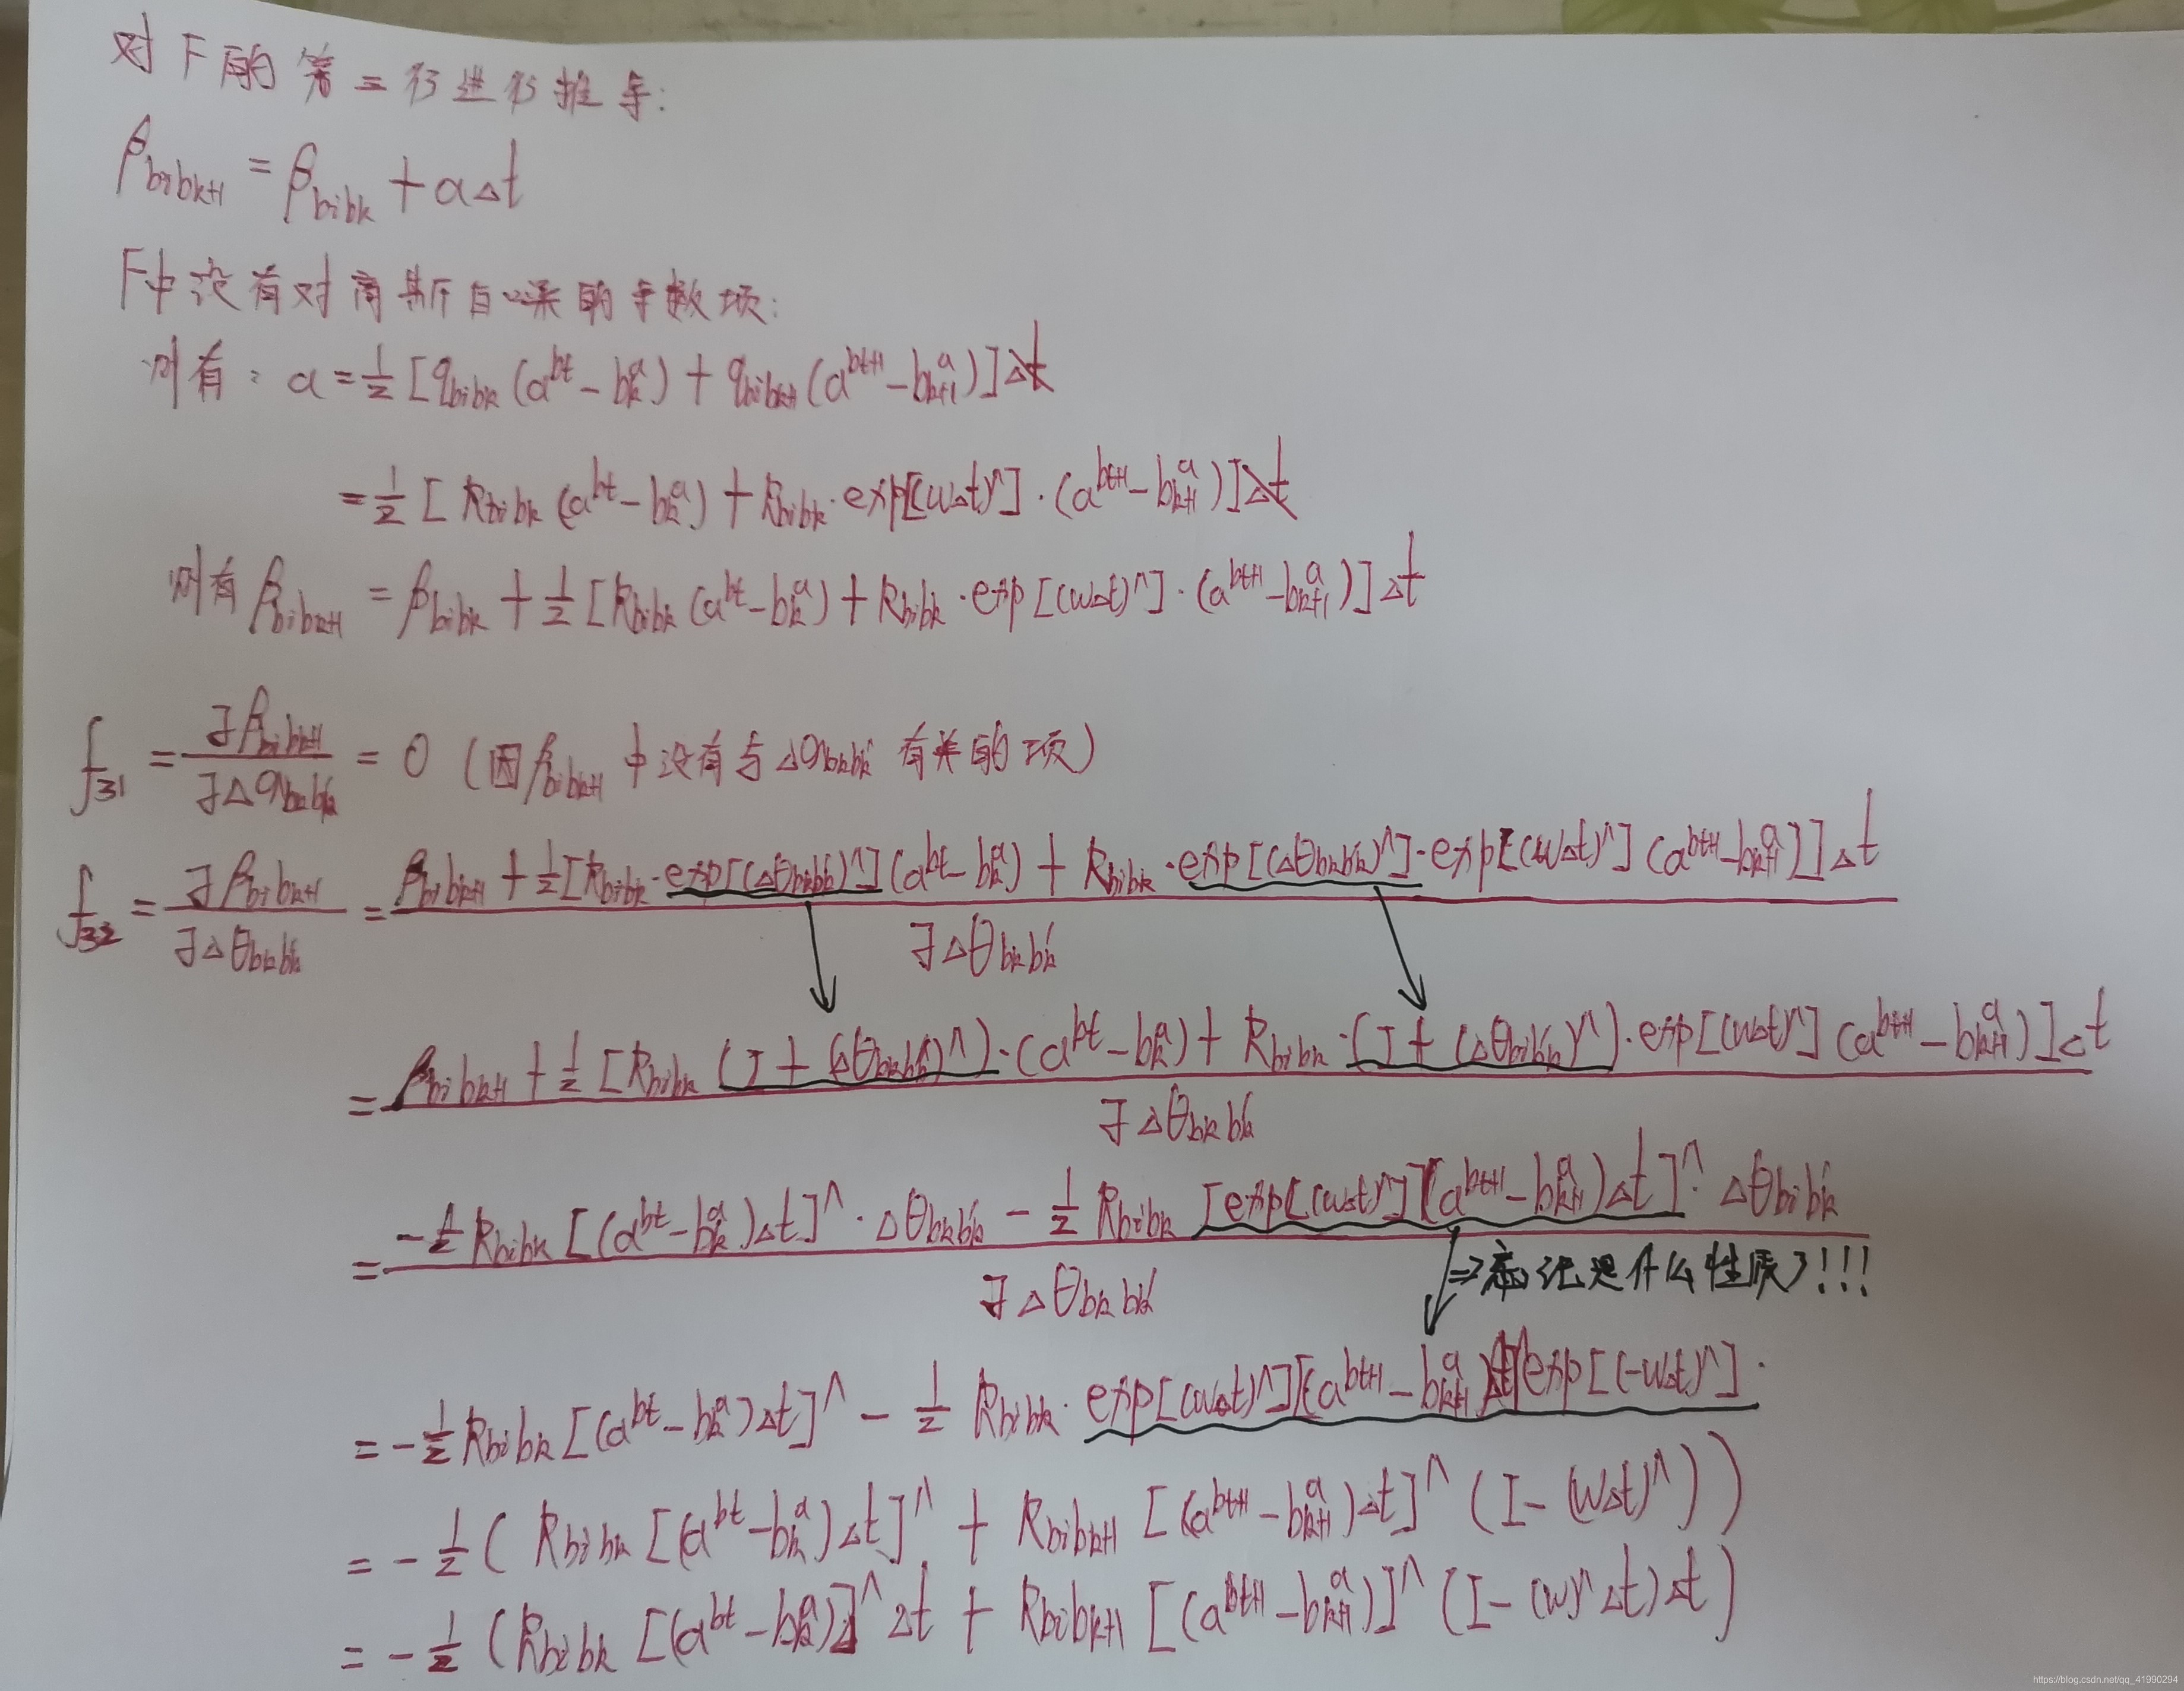 对F的第三行进行推导:
β_{bibk+1} = β_{bibk} + aΔt
F中没有对高斯白噪的导数项:
则有: a = 1/2 [q_{bibk}(a^{bt} - b_k^a) + q_{bibk+1}(a^{bt+1} - b_{k+1}^a)]Δt
= 1/2 [R_{bibk}(a^{bt} - b_k^a) + R_{bibk}·exp[(wΔt)^∧]·(a^{bt+1} - b_{k+1}^a)]Δt
则有 β_{bibk+1} = β_{bibk} + 1/2 [R_{bibk}(a^{bt} - b_k^a) + R_{bibk}·exp[(wΔt)^∧]·(a^{bt+1} - b_{k+1}^a)]Δt
f_{31} = ∂β_{bibk+1} / ∂Δα_{bkbk'} = 0 (因β_{bibk+1}中没有与Δα_{bkbk'}有关的项)
f_{32} = ∂β_{bibk+1} / ∂Δθ_{bkbk'} = β_{bibk+1} + 1/2[R_{bibk}·exp[(Δθ_{bkbk'})^∧](a^{bt} - b_k^a) + R_{bibk}·exp[(Δθ_{bkbk'})^∧]·exp[(wΔt)^∧](a^{bt+1} - b_{k+1}^a)]Δt / ∂Δθ_{bkbk'}
= β_{bibk+1} + 1/2 [R_{bibk}(I + (Δθ_{bkbk'})^∧)·(a^{bt} - b_k^a) + R_{bibk}·(I + (Δθ_{bibk'})^∧)·exp[(wΔt)^∧](a^{bt+1} - b_{k+1}^a)]Δt / ∂Δθ_{bkbk'}
= -1/2 R_{bibk}[(a^{bt} - b_k^a)Δt]^∧·Δθ_{bkbk'} - 1/2 R_{bibk}[exp[(wΔt)^∧](a^{bt+1} - b_{k+1}^a)Δt]^∧·Δθ_{bibk'} / ∂Δθ_{bkbk'}
⇒忘记是什么性质了!!!
= -1/2 R_{bibk}[(a^{bt} - b_k^a)Δt]^∧ - 1/2 R_{bibk}·exp[(wΔt)^∧][(a^{bt+1} - b_{k+1}^a)Δt]exp[(-wΔt)^∧]·
= -1/2 (R_{bibk}[(a^{bt} - b_k^a)Δt]^∧ + R_{bibk+1}[(a^{bt+1} - b_{k+1}^a)Δt]^∧(I - (wΔt)^∧))
= -1/2 (R_{bibk}[(a^{bt} - b_k^a)]^∧Δt + R_{bibk+1}[(a^{bt+1} - b_{k+1}^a)]^∧(I - (w)^∧Δt)Δt)
https://blog.csdn.net/qq_41990294